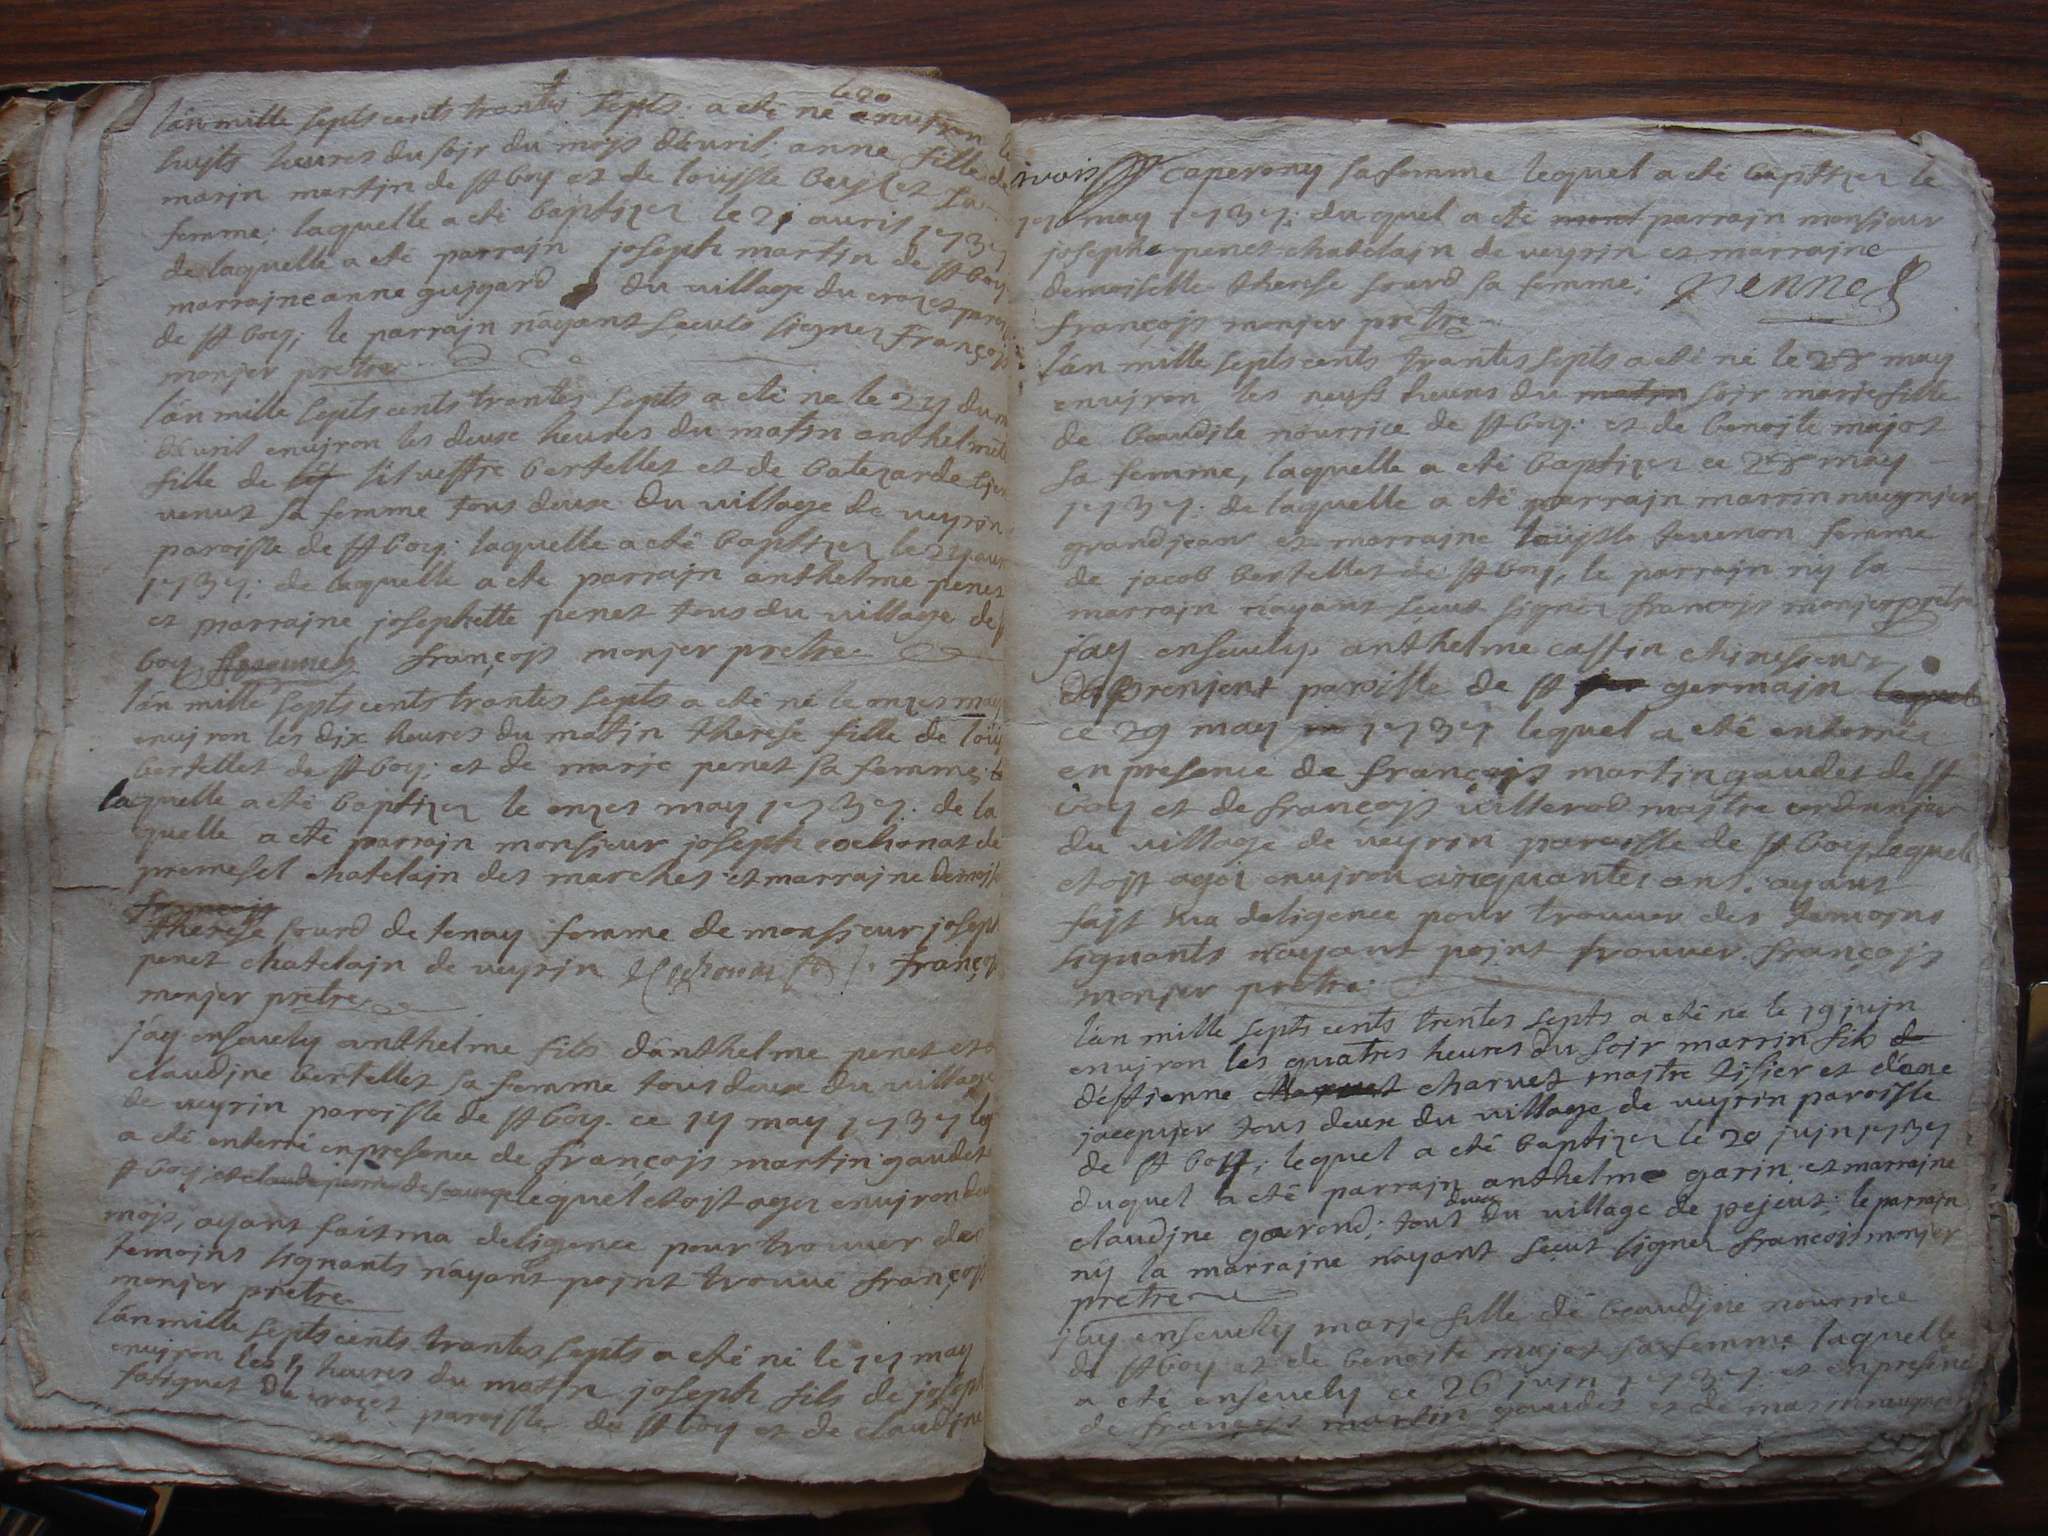 le 20
l'án mille septs cents trantes septs. a eté né environ le
huits heures du sojr du mojs d'avril; anne fille de
marin martjn de st boy et de louisse beyset sa
femme; laquelle a eté baptizez le 21 avril 1737
de laquelle a eté parrajn joseph martin de st boy
marrajne anne guigard du village du crozet paroi
de st boy; le parrajn n'ayant sceuts signez françojs
monjer pretre
l'án mille septs cents trantes septs a eté né le 27 du m
d'avril envjron les deux heures du matjn anthelmete
fille de silvestre bertellet et de
venut sa femme tous deux du village de veyrin
paroisse de st boy; laquelle a eté baptizez le 27 avr
1737; de laquelle a eté parrajn anthelme penet
et marrajne josephette penet tous du village de st
boy françojs monjer pretre
l'án mille septs cents trantes septs a eté né le onzes may
envjron les dix heures du matjn therese fille de louis
bertellet de st boy; et de marje penet sa femme; la
laquelle a eté baptizez le onzes may 1737. de la
quelle a eté parrajn monsjeur joseph cochonat de
premesel chatelajn des marches et marrajne demojse
françojs
therese sourd de tenay femme de monssjeur joseph
penet chatelajn de veyrin françojs
monjer pretre
j'ay ensevely anthelme fils d'ánthelme penet et d
claudjne bertellet sa femme tous deux du village
de veyrin paroisse de st boy. ce 14 may 1737 leq
a eté enterré en presence de françojs martin gaudet d
st boy; et claude pierre de lequel etojt agez envjron deux
mojs, ayant fait ma deligence pour trouver des
temojns signants n'ayant pojnt trouvé françojs
monjer pretre
l'án mille septs cents trantes septs a eté né le 17 may
envjron les 4 heures du matjn joseph fils de joseph
fatiguet du crozet paroisse de st boy et de claudjne
caperony sa femme lequel a eté baptizez le
17 may 1737; du quel a eté parrajn monsjeur
joseph penet chatelajn de veyrin et marrajne
demoiselle therese sourd sa femme; Pennet
françojs monjer pretre
l'án mille septs cents trantes septs a eté né le 28 may
envjron les neufs heures du matjn sojr marje fille
de baudile nourrice de st boy; et de benojte majot
sa femme, laquelle a eté baptizez ce 28 may
1737. de laquelle a eté parrajn marrin
grandjean et marrajne louysse tevenon femme
de jacob bertellet de st boy, le parrajn nÿ la
marrajn n'ayant sceut signez françojs monjer pretre
j'ay ensevely anthelme cassin
de prenjent paroisse de st germajn lequel
ce 29 may 1737 lequel a eté enterrée
en presence de françojs martin gaudet de st
boy et de françojs villerod majtre cordonjer
du village de veyrin paroisse de st boy, lequel
etojt agéz envjron cinquantes ans. ayant
fajt ma deligence pour trouver des temojns
signants n'ayant pojnt trouver. françojs
monjer pretre.
l'án mille septs cents trentes septs a eté né le 19 jujn
envjron les quatres heures du sojr marrin fils d
d'éstjenne charvet charvet majtre tisjer et d'áne
jacqujer tous deux du village de veyrin paroisse
de st boy; lequel a eté baptizez le 20 jujn 1737
duquel a eté parrajn anthelme garin. et marrajne
claudjne gourond; tous deux du village de pejeut; le parrajn
nÿ la marrajne n'ayant sceut signez françojs monjer
pretre
j'ay ensevely marje fille de baudjne nourrice
de st boy et de benojte majot sa femme laquelle
a eté ensevely ce 26 jujn 1737. et en presence
de françojs martin gaudet et de marin